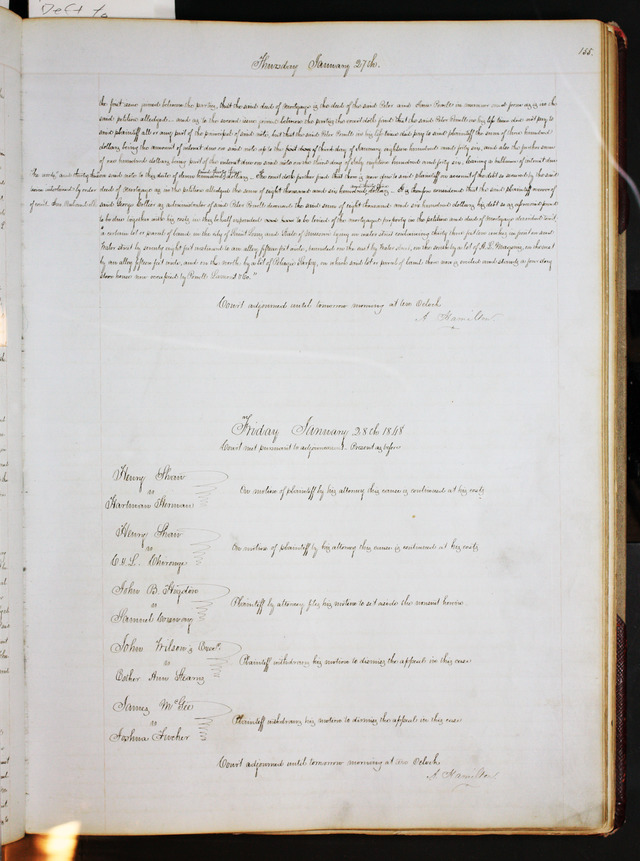 Deft to
155.
Thursday January 27th.
the first issue joined between the parties, that the said deed of mortgage is the deed of the said Peter and Jane Powell in manner and form as is in the
said petition alledged - and as to the second issue joined between the parties the court doth find that the said Peter Powell in his life time did not pay to
said plaintiff all or any part of the principal of said note, but that the said Peter Powell in his life time did pay to said plaintiff the sum of three hundred
dollars, being the amount of interest due on said note up to the third day of January eighteen hundred and forty six, and also the further sum
of one hundred dollars being part of the interest due on said note on the third day of July eighteen hundred and forty six, leaving a balance of interest due
on said note to this date of dollars. The court doth further find that there is now due to said plaintiff on account of the debt so secured by the said
deed of mortgage as in the petition alledged the sum of eight thousand and six hundred dollars. It is therefore considered that the said plaintiff recover of
said George Collier as administrator of said Peter Powell deceased the said sum of eight thousand and six hundred dollars his debt as aforesaid found
to be due together with his costs in this behalf expended and to be levied of the mortgaged property in the petition and deed of mortgage described viz:
a certain lot or parcel of land in the city of Saint Louis and State of Missouri lying on water street containing thirty three feet four inches in front on said
Water street by seventy eight feet eastward to an alley fifteen feet wide, bounded on the east by Water street, on the south by a lot of A. L. on the west
by an alley fifteen feet wide, and on the north by a lot of Peligie Sarpy, on which said lot or parcel of land there was is erected and stands a four story
store house now occupied by Powell &Co."
Court adjourned until tomorrow morning at ten Oclock
A Hamilton
Friday January 28th 1848
Court met pursuant to adjournment. Present as before
Henry Shaw
vs
Hartman Herman
On motion of plaintiff by his attorney this cause is continued at his costs
Henry Shaw
vs
C & L.
On motion of plaintiff by his attorney this cause is continued at his costs
John B. Higdon
vs
Samuel Conway
Plaintiff by attorney files his motion to set aside the nonsuit herein.
John Wilson's Exors.
vs
Esther Ann Stearns
Plaintiff withdraws his motion to dismiss the appeal in this case
James McGee
vs
Joshua Tucker
Plaintiff withdraws his motion to dismiss the appeal in this case
Court adjourned until tomorrow morning at ten Oclock
A Hamilton